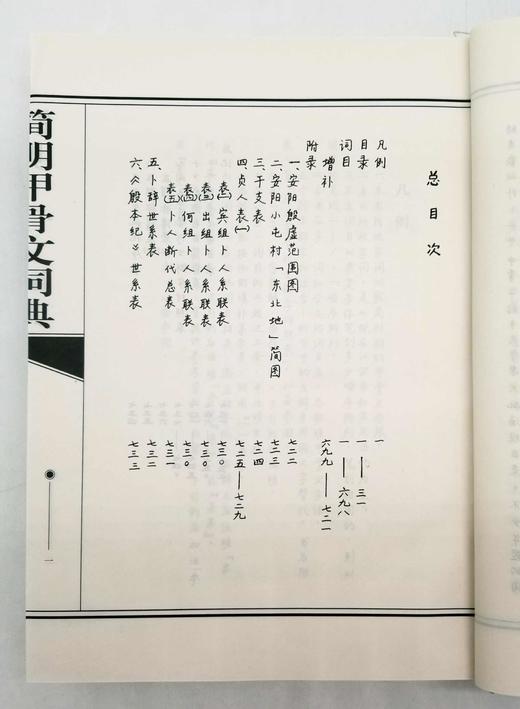 总目次
凡例 一
目录 一——三一
词目 一——六九八
增补 六九九——七二一
附录
一、安阳殷虚范围图 七二二
二、安阳小屯村「东北地」简图 七二三
三、干支表 七二四
四、贞人表(一) 七二五——七二九
表(二)宾组卜人系联表 七三〇
表(三)出组卜人系联表 七三〇
表(四)何组卜人系联表 七三〇
表(五)卜人断代总表 七三一
五、卜辞世系表 七三二
六、《殷本纪》世系表 七三三
简明甲骨文词典
一